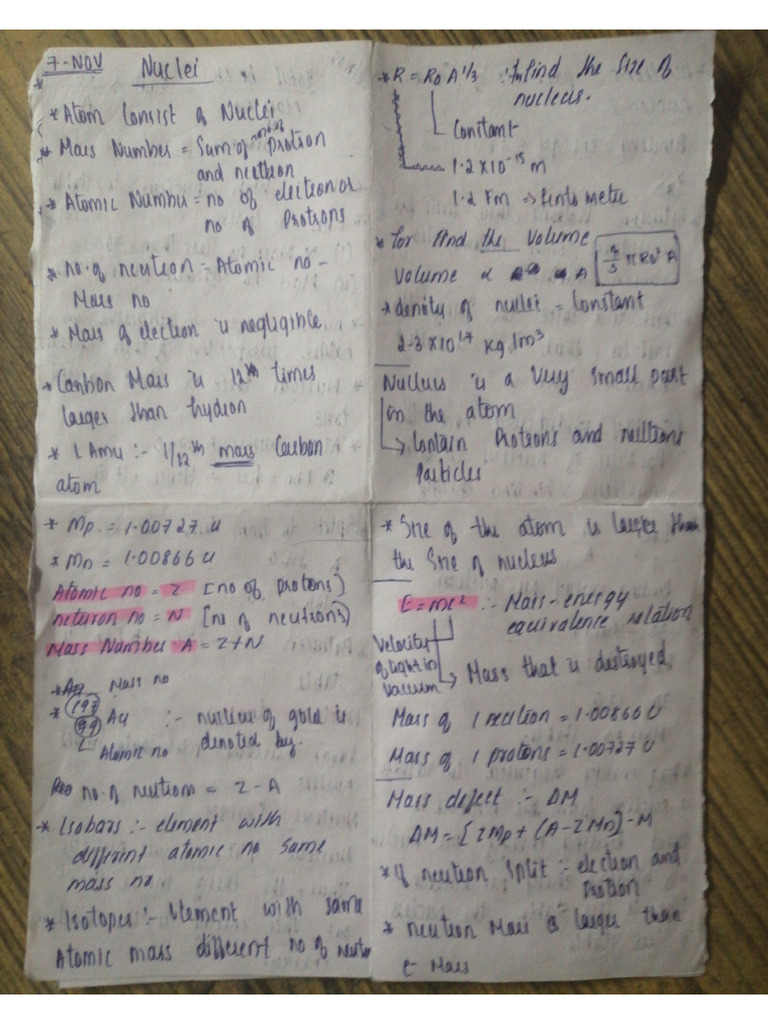 7-NOV Nuclei
* Atom Consist of Nuclei
* Mass Number = Sum of no of Protron
and neutron
* Atomic Number = no of electron or
no of Protrons
* no. of neutron = Atomic no -
Mass no
* Mass of electron is negligible
* Carbon Mass is 12th times
larger than hydron
* 1 Amu :- 1/12th mass Carbon
atom
* Mp = 1.00727 u
* Mn = 1.00866 u
Atomic no = Z [no of protons)
neturon no = N [no of neutrons)
Mass Number A = Z+N
Mass no
* 197
99 Au :- nucleus of gold is
denoted by.
Atomic no
no. of neutrons = Z - A
* Isobars :- element with
different atomic no same
mass no
* Isotopes :- Element with same
Atomic mass different no of neutron
* R = R0 A 1/3 : To find the size of
nucleus.
Constant
1.2 x 10-15 m
1.2 Fm => fento meter
* for find the Volume
Volume ∝ A 4/3 π R03 A
* density of nuclei = Constant
2.3 x 1017 kg/m3
Nucleus is a Very small part
in the atom
→ Contain Protrons and neutrons
Particles
* Size of the atom is larger than
the Size of nucleus
E = mc2 :- Mass-energy
equivalence relation
Velocity
of light in
vaccum
→ Mass that is destroyed
Mass of 1 neutron = 1.00866 U
Mass of 1 protons = 1.00727 U
Mass defect :- ΔM
ΔM = [ZMp + (A-ZMn)] - M
* If neutron split :- electron and
Protron
* neutron Mass is larger than
e- Mass